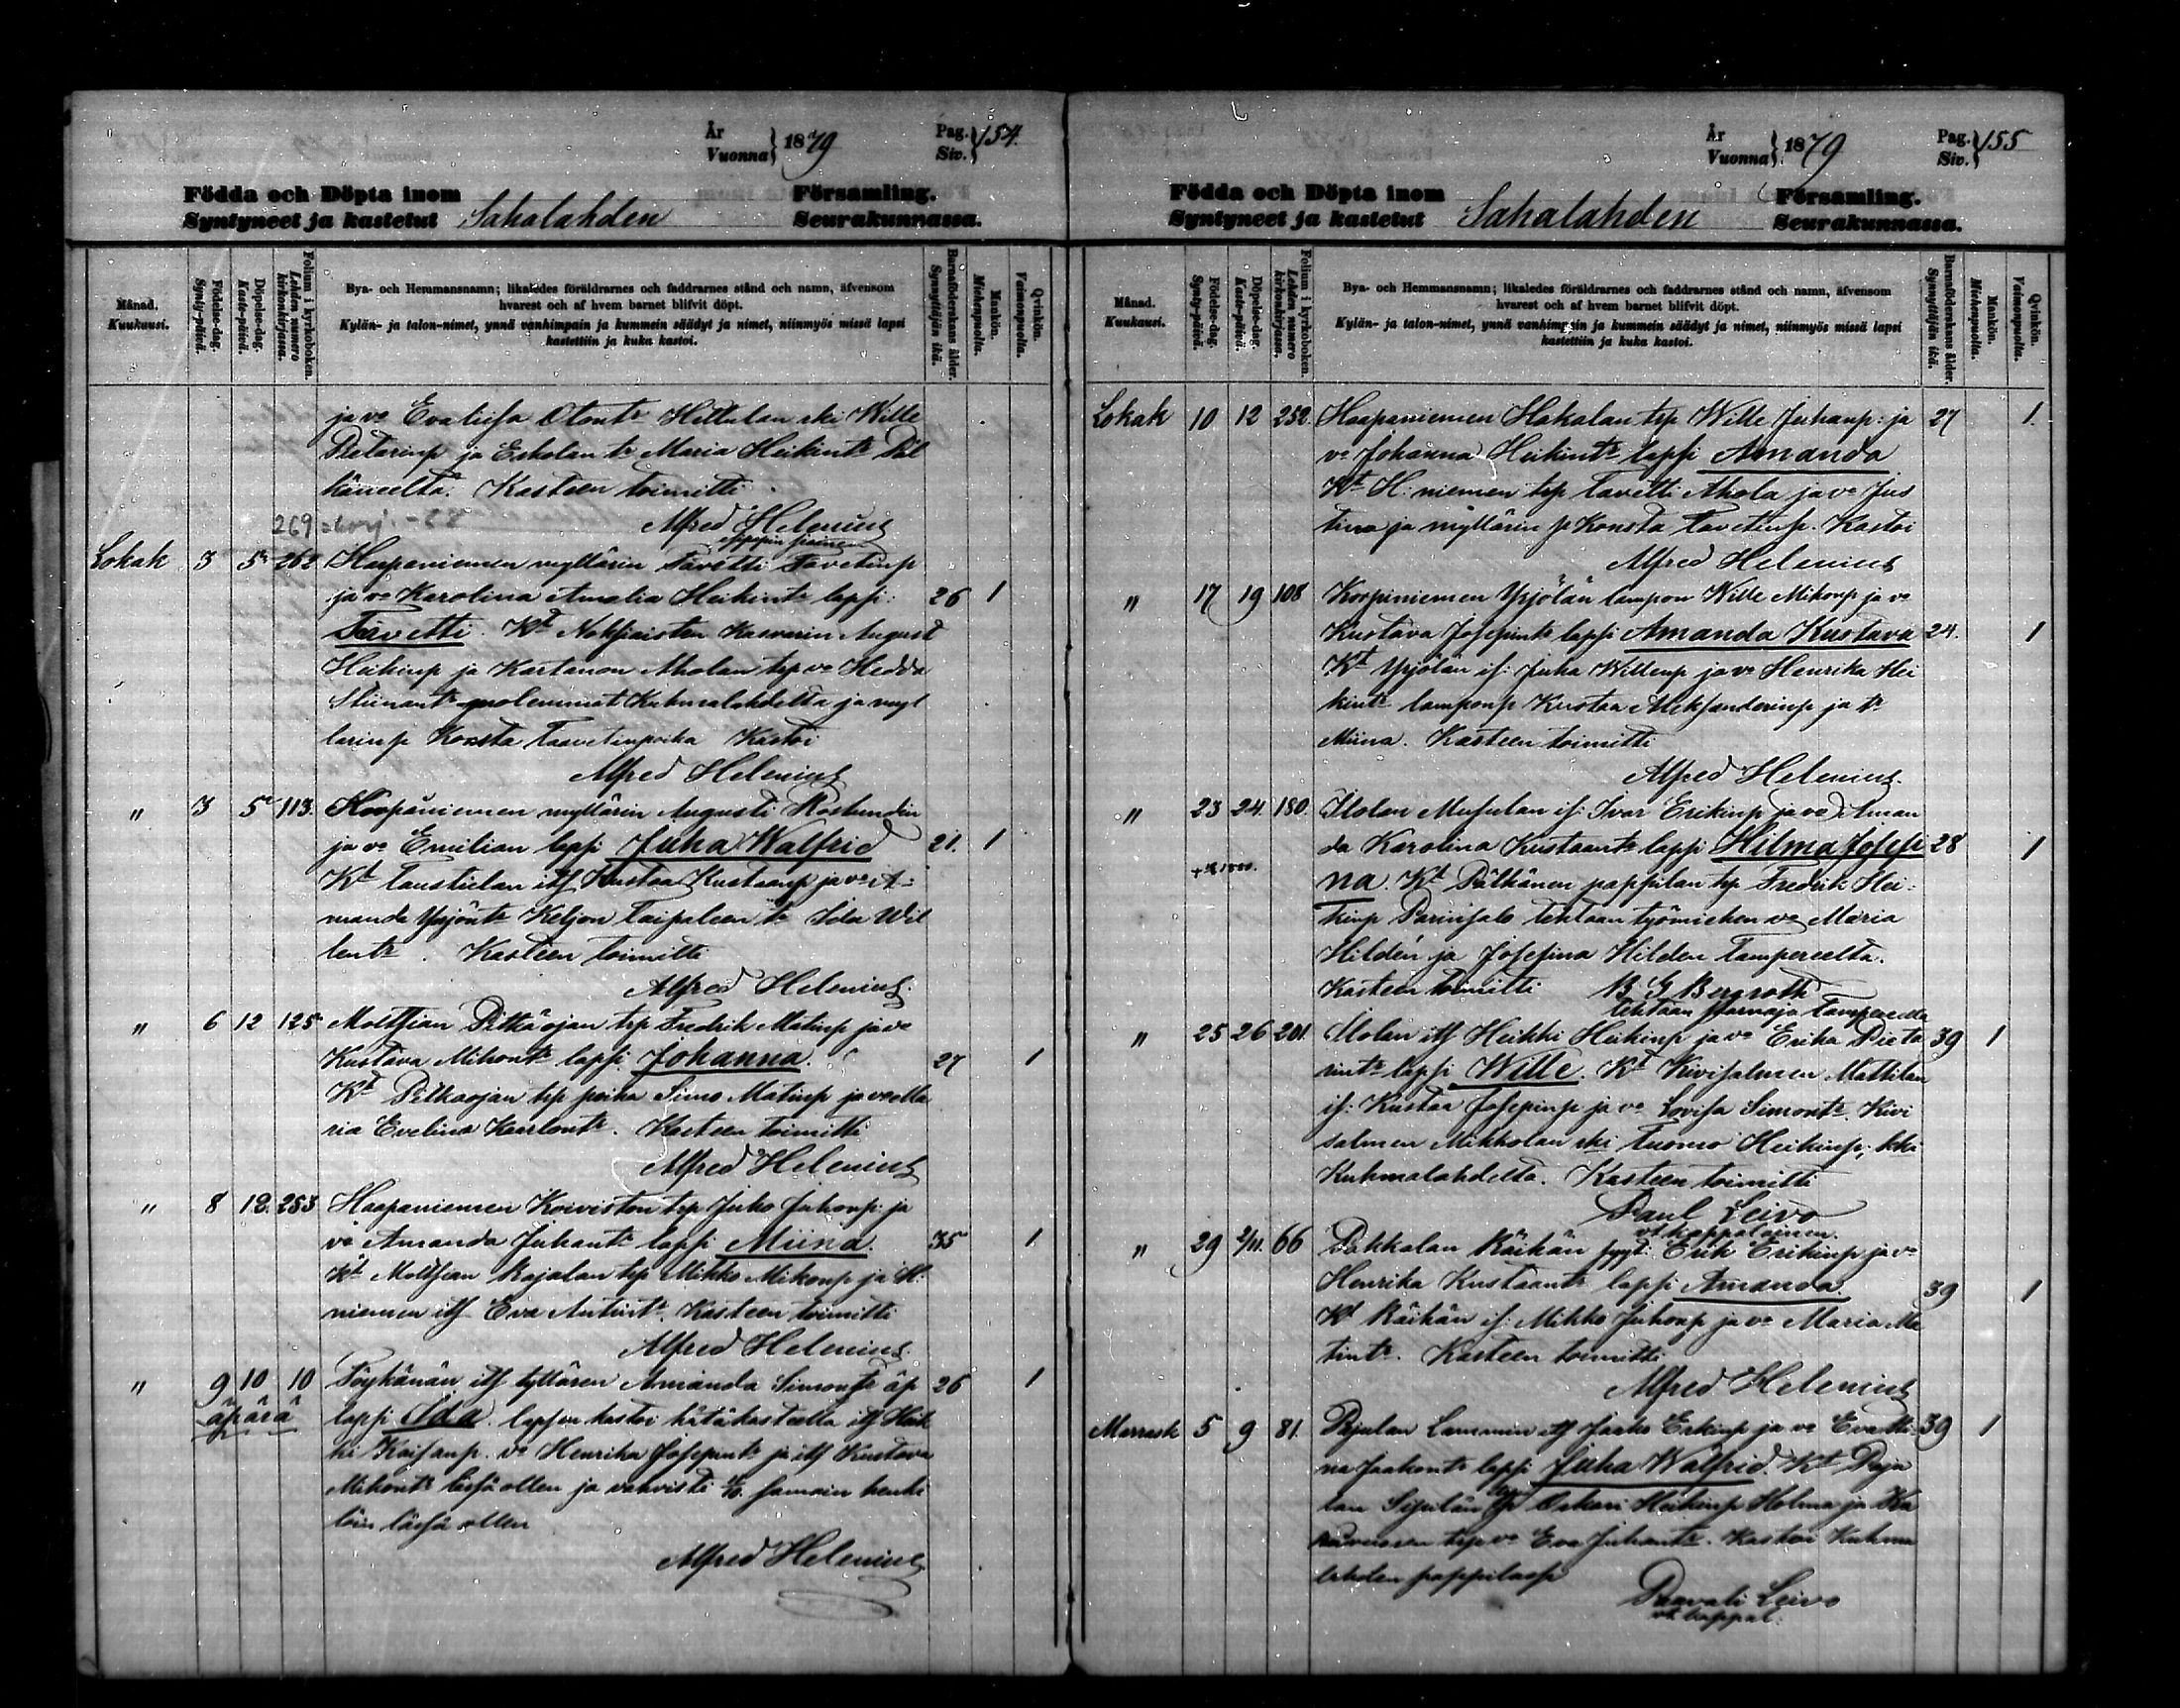 År
Vuonna } 1879
Pag.
Siv. } 154.
Födda och Döpta inom Församling.
Syntyneet ja kastetut Sahalahden Seurakunnassa.
Månad.
Kuukausi.
Födelse-dag.
Synty-päivä.
Döpelse-dag.
Kaste-päivä.
Folium i kyrkoboken.
Lehden numero kirkonkirjassa.
Bya- och Hemmansnamn; likaledes föräldrarnes och faddrarnes stånd och namn, äfvensom
hvarest och af hvem barnet blifvit döpt.
Kylän- ja talon-nimet, ynnä vanhimpain ja kummein säädyt ja nimet, niinmyös missä lapsi
kastettiin ja kuka kastoi.
Barnaföderskans ålder.
Synnyttäjän ikä.
Mankön.
Miehenpuolta.
Qvinkön.
Vaimonpuolta.
ja vo Evaliisa Otont. Hettulan rki Wille
Pietarinp ja Eskolan tr Maria Heikint. Päl
käneeltä. Kasteen toimitti
Alfred Helenius
269
Lokak 3 5 262 Haapaniemen myllärin Tavetti Tavetinp
ja vo Karolina Amalia Heikint. lapsi: 26 1
Tavetti. Kt Nokkaisten Kasvarin August
Heikinp ja Kartanon Aholan trp vo Hedda
Stiinant. molemmat Kuhmalahdelta ja myl
lärin p Konsta Taavetinpoika Kastoi
Alfred Helenius
" 3 5 113. Haapaniemen myllärin Augusti Roslundin
ja vo Emilian lapsi Juha Walfrid 21. 1
Kt Taustialan itf Kustaa Kustaanp ja vo A-
manda Yrjönt. Keljon Taipaleen tr Ida Wil
lent. Kasteen toimitti
Alfred Helenius.
" 6 12 125 Moltsian Pitkäojan trp Fredrik Matinp ja vo
Kustava Mikont. lapsi Johanna. 27 1
Kt Pitkäojan trp poika Simo Matinp ja vo Ma
ria Evelina Kaarlont. Kasteen toimitti
Alfred Helenius
" 8 12. 253 Haapaniemen Koiviston trp Juho Juhonp: ja
vo Amanda Juhant. lapsi Miina. 35 1
Kt Moltsian Rajalan trp Mikko Mikonp ja H:
niemen itf Eva Antint. Kasteen toimitti
Alfred Helenius.
" 9 10 10 Töykänän itf tyttären Amanda Simont. äp 26 1
äpärä lapsi Ida. lapsen kastoi hätäkasteella itf Heik
ki Kaisanp. vo Henrika Josepint. ja itf Kustava
Mikont. läsnä ollen ja vahvisti samain henki
löin läsnä ollen
Alfred Helenius
År
Vuonna } 1879
Pag.
Siv. } 155
Födda och Döpta inom Församling.
Syntyneet ja kastetut Sahalahden Seurakunnassa.
Månad.
Kuukausi.
Födelse-dag.
Synty-päivä.
Döpelse-dag.
Kaste-päivä.
Folium i kyrkoboken.
Lehden numero kirkonkirjassa.
Bya- och Hemmansnamn; likaledes föräldrarnes och faddrarnes stånd och namn, äfvensom
hvarest och af hvem barnet blifvit döpt.
Kylän- ja talon-nimet, ynnä vanhimpain ja kummein säädyt ja nimet, niinmyös missä lapsi
kastettiin ja kuka kastoi.
Barnaföderskans ålder.
Synnyttäjän ikä.
Mankön.
Miehenpuolta.
Qvinkön.
Vaimonpuolta.
Lokak 10 12 252. Haapaniemen Hakalan trp Wille Juhanp: ja 27 1.
vo Johanna Heikint. lapsi Amanda
Kt H:niemen trp Tavetti Ahola ja vo Jus
tiina ja myllärin p Konsta Tavetinp. Kastoi
Alfred Helenius
" 17 19 108 Korpiniemen Yrjölän lampon Wille Mikonp ja vo
Kustava Josepint. lapsi Amanda Kustava 24. 1
Kt Yrjölän is: Juha Willenp ja vo Henrika Hei
kint. lamponp Kustaa Aleksanderinp ja tr
Miina. Kasteen toimitti
Alfred Helenius.
" 23 24. 180. Itolan Musulan is: Ivar Erikinp ja vo Aman
da Karolina Kustaant. lapsi Hilma Josefi 28 1
na. Kt Pälkänen pappilan trp Fredrik Hei:
kinp Parnisalo tehtaan työmiehen vo Maria
Hildén ja Josefina Hilden Tampereelta.
Kasteen toimitti B. G. Bergroth
tehtaan saarnaja Tampereella
" 25 26 201. Itolan itf Heikki Heikinp ja vo Erika Pieta 39 1
rint. lapsi Wille. Kt Kivisalmen Mattilan
is: Kustaa Josepinp ja vo Lovisa Simont. Kivi
salmen Mikkolan rki Tuomo Heikinp; kki
Kuhmalahdelta. Kasteen toimitti
Paul Leivo
vt kappalainen.
" 29 2/11. 66 Pakkalan Räikän syyt: Erik Erikinp ja vo
Henrika Kustaant. lapsi Amanda. 39 1
Kt Räikän is: Mikko Juhonp ja vo Maria Ma
tint. Kasteen toimitti
Alfred Helenius
Marrask 5 9 81. Pajulan Lammin itf Jaako Erkinp ja vo Eva Sti 39 1
na Jaakont. lapsi Juha Walfrid. Kt Paju
lan Sipilän trp Oskari Heikinp Holma ja Ka
trp vo Eva Juhant. Kastoi Kuhma
lahden pappilassa
Paavali Leivo
vt kappal.